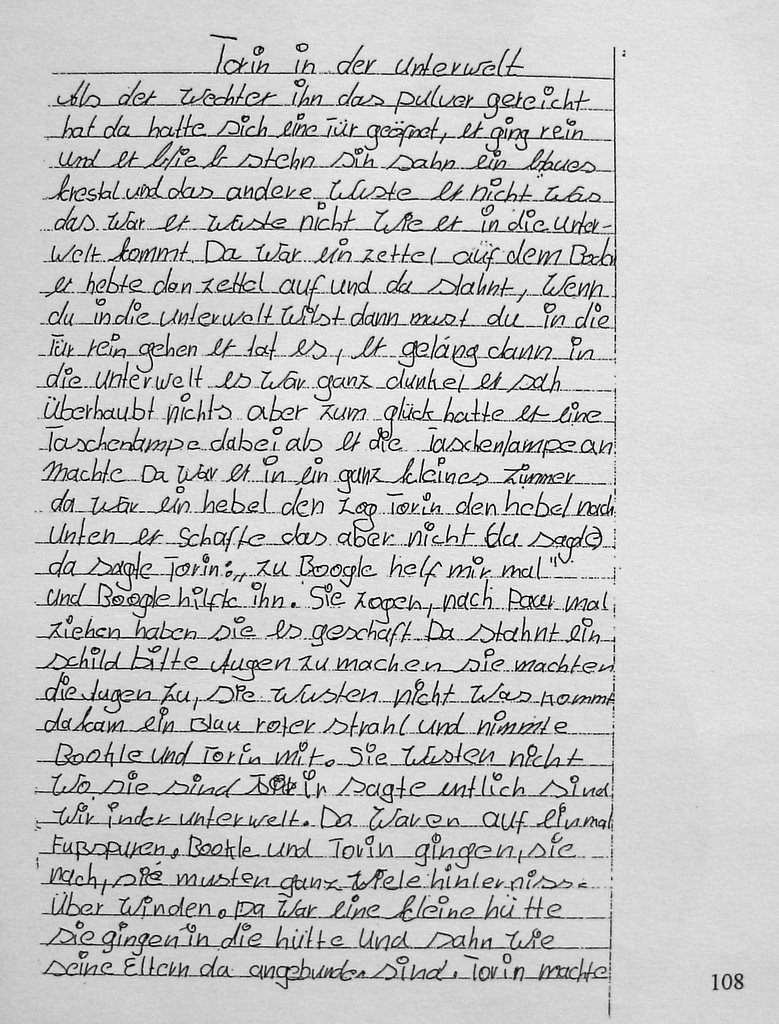 Torin in der unterwelt
Als der Wechter ihn das pulver gereicht
hat da hatte sich eine Tür geöpnet, er ging rein
und er blieb stehn sin sahn ein blaues
krestal und das andere wuste er nicht was
das war er wuste nicht wie er in die unter-
welt kommt. Da war ein zettel auf dem Boden
er hebte den zettel auf und da stahnt, wenn
du in die unterwelt wilst dann must du in die
Tür rein gehen er tat es, er gelang dann in
die unterwelt es war ganz dunkel er sah
überhaubt nichts aber zum glück hatte er eine
Taschenlampe dabei als er die Taschenlampe an
machte Da war er in ein ganz kleines zimmer
da war ein hebel den zog Torin den hebel nach
unten er schafte das aber nicht (da sagde)
da sagte Torin: „zu Boogle helf mir mal"
und Boogle hilfte ihn. Sie zogen, nach paar mal
ziehen haben sie es geschaft. Da stahnt ein
schild bitte Augen zu machen sie machten
die Augen zu, sie wusten nicht was kommt
da kam ein Blau roter strahl und nimmte
Bookle und Torin mit. Sie wusten nicht
wo sie sind Torin sagte entlich sind
wir in der unterwelt. Da waren auf einmal
Fußspuren. Bookle und Torin gingen, sie
nach, sie musten ganz viele hinterniss
über winden. Da war eine kleine hütte
sie gingen in die hütte und sahn wie
seine Eltern da angebunden sind. Torin machte
108